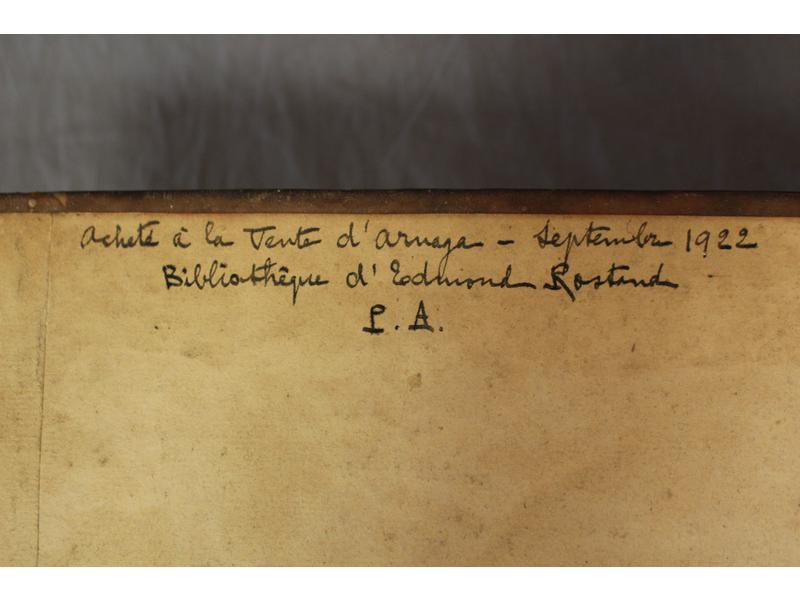 Acheté à la Vente d'Arnaga - Septembre 1922
Bibliothèque d'Edmond Rostand
P. A.